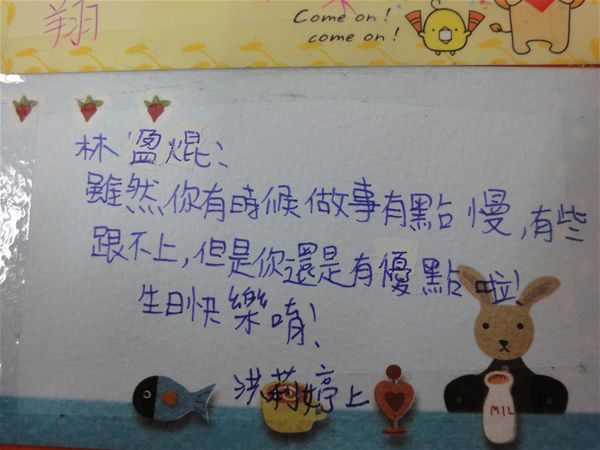 翔
Come on!
come on!
林盈焜:
雖然你有時候做事有點慢,有些
跟不上,但是你還是有優點啦!
生日快樂唷!
洪莉婷上
MIL